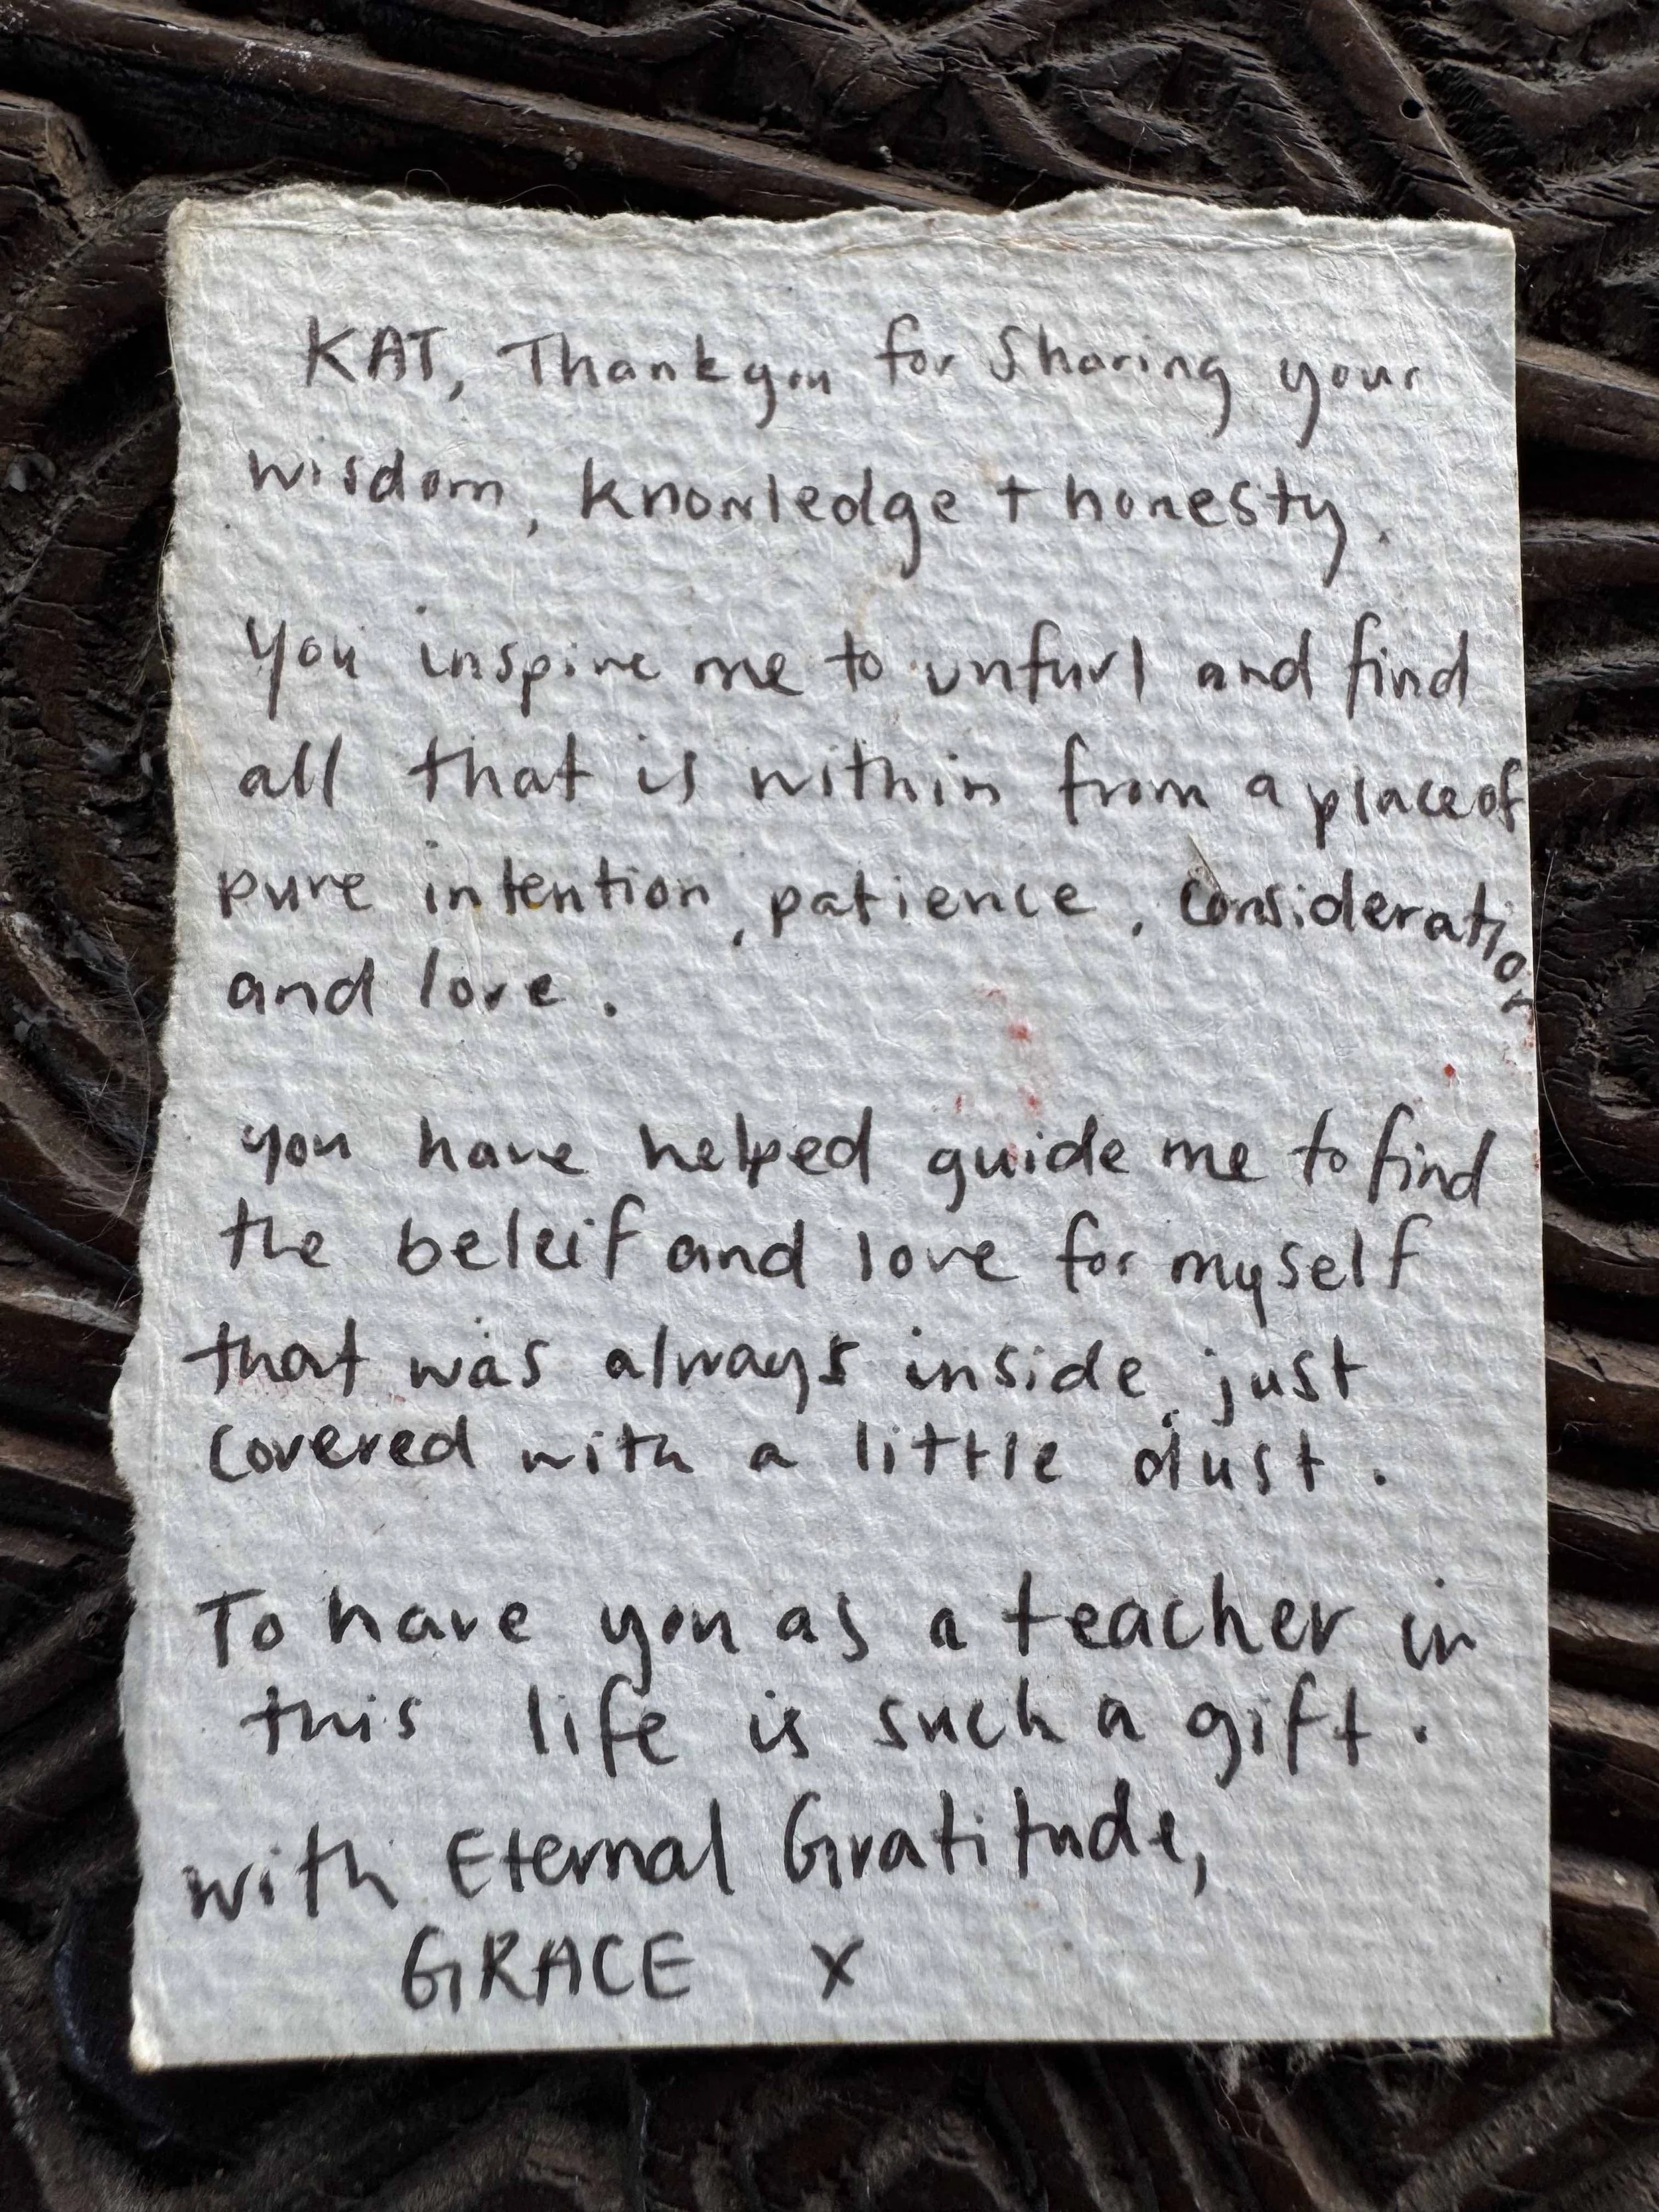 KAT, Thankyou for Sharing your
wisdom, knowledge + honesty.
You inspire me to unfurl and find
all that is within from a place of
pure intention, patience, consideration
and love.
you have helped guide me to find
the beleif and love for myself
that was always inside, just
covered with a little dust.
To have you as a teacher in
this life is such a gift.
with Eternal Gratitude,
GRACE x